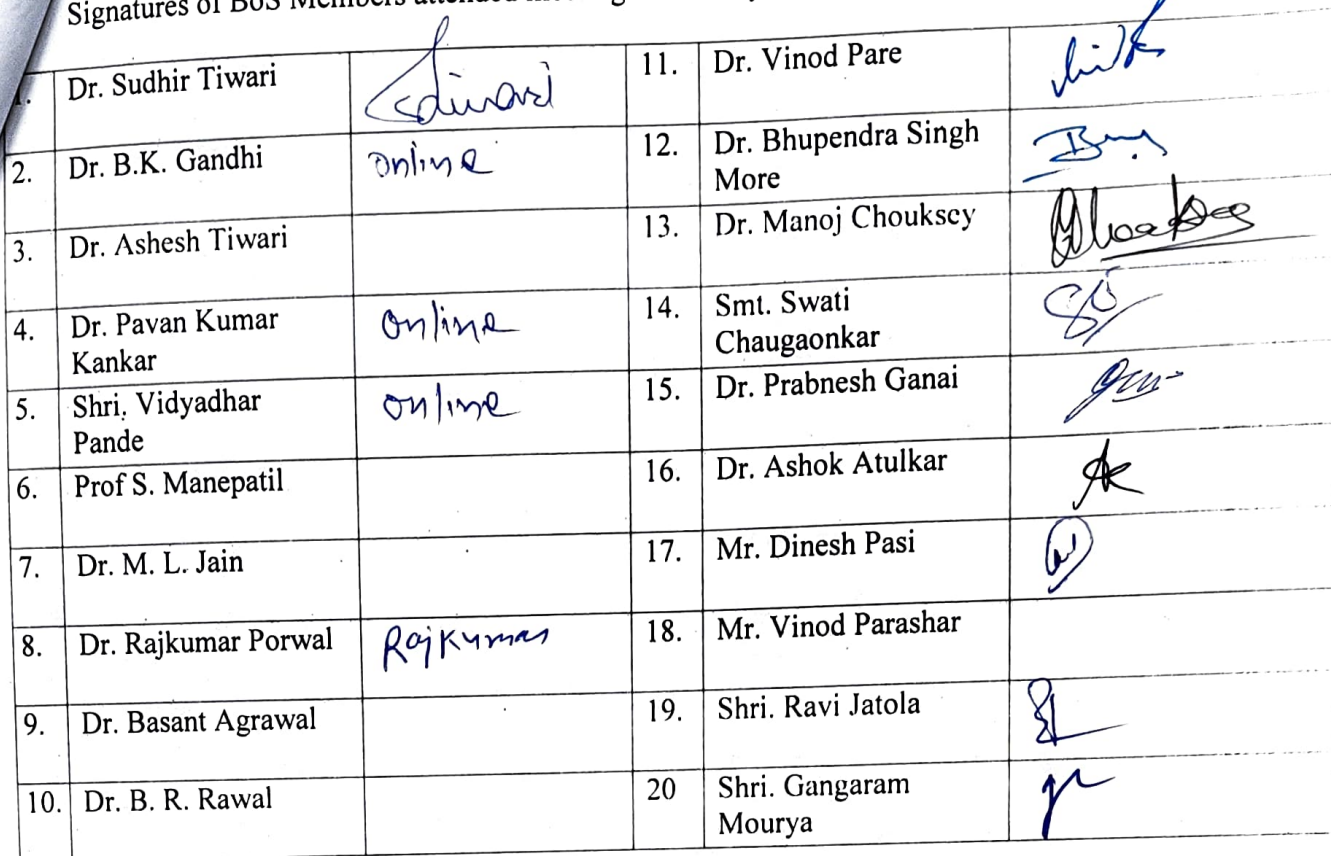 Signatures of BoS Members attended
1. Dr. Sudhir Tiwari
11. Dr. Vinod Pare
2. Dr. B.K. Gandhi online
12. Dr. Bhupendra Singh
More
3. Dr. Ashesh Tiwari
13. Dr. Manoj Chouksey
4. Dr. Pavan Kumar
Kankar
online
14. Smt. Swati
Chaugaonkar
5. Shri. Vidyadhar
Pande
online
15. Dr. Prabnesh Ganai
6. Prof S. Manepatil
16. Dr. Ashok Atulkar
7. Dr. M. L. Jain
17. Mr. Dinesh Pasi
8. Dr. Rajkumar Porwal Rajkumar
18. Mr. Vinod Parashar
9. Dr. Basant Agrawal
19. Shri. Ravi Jatola
10. Dr. B. R. Rawal
20 Shri. Gangaram
Mourya